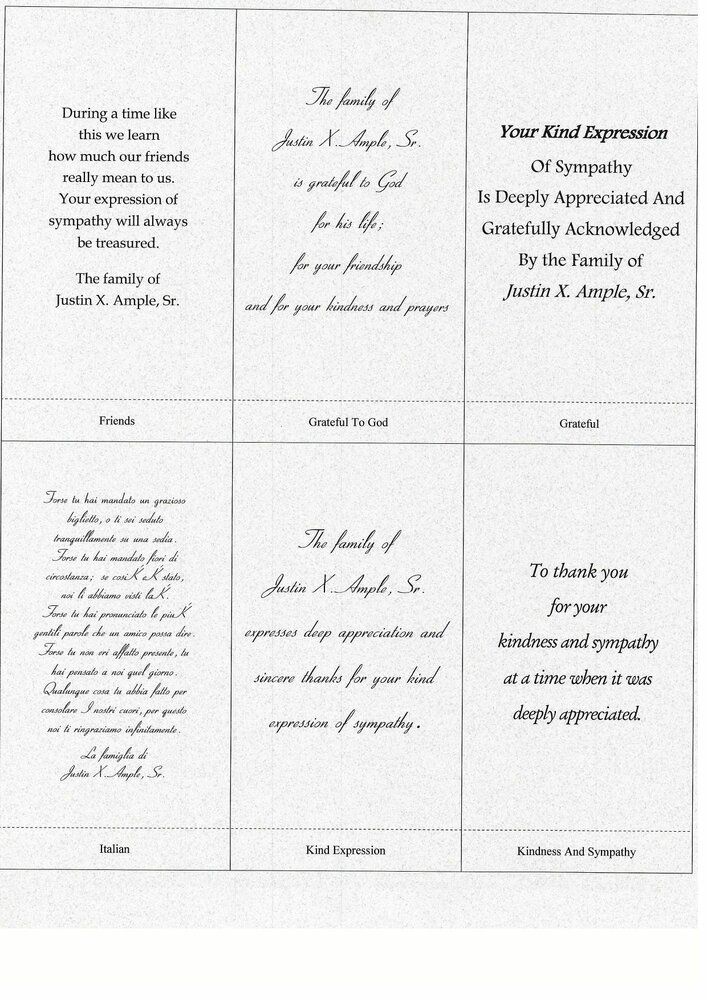 During a time like
this we learn
how much our friends
really mean to us.
Your expression of
sympathy will always
be treasured.
The family of
Justin X. Ample, Sr.
Friends
The family of
Justin X. Ample, Sr.
is grateful to God
for his life;
for your friendship
and for your kindness and prayers
Grateful To God
Your Kind Expression
Of Sympathy
Is Deeply Appreciated And
Gratefully Acknowledged
By the Family of
Justin X. Ample, Sr.
Grateful
Forse tu hai mandato un grazioso
biglietto, o ti sei seduto
tranquillamente su una sedia.
Forse tu hai mandato fiori di
circostanza; se cosiЌ eЌ stato,
noi li abbiamo visti laЌ.
Forse tu hai pronunciato le piuЌ
gentili parole che un amico possa dire.
Forse tu non eri affatto presente, tu
hai pensato a noi quel giorno.
Qualunque cosa tu abbia fatto per
consolare I nostri cuori, per questo
noi ti ringraziamo infinitamente.
La famiglia di
Justin X. Ample, Sr.
Italian
The family of
Justin X. Ample, Sr.
expresses deep appreciation and
sincere thanks for your kind
expression of sympathy.
Kind Expression
To thank you
for your
kindness and sympathy
at a time when it was
deeply appreciated.
Kindness And Sympathy